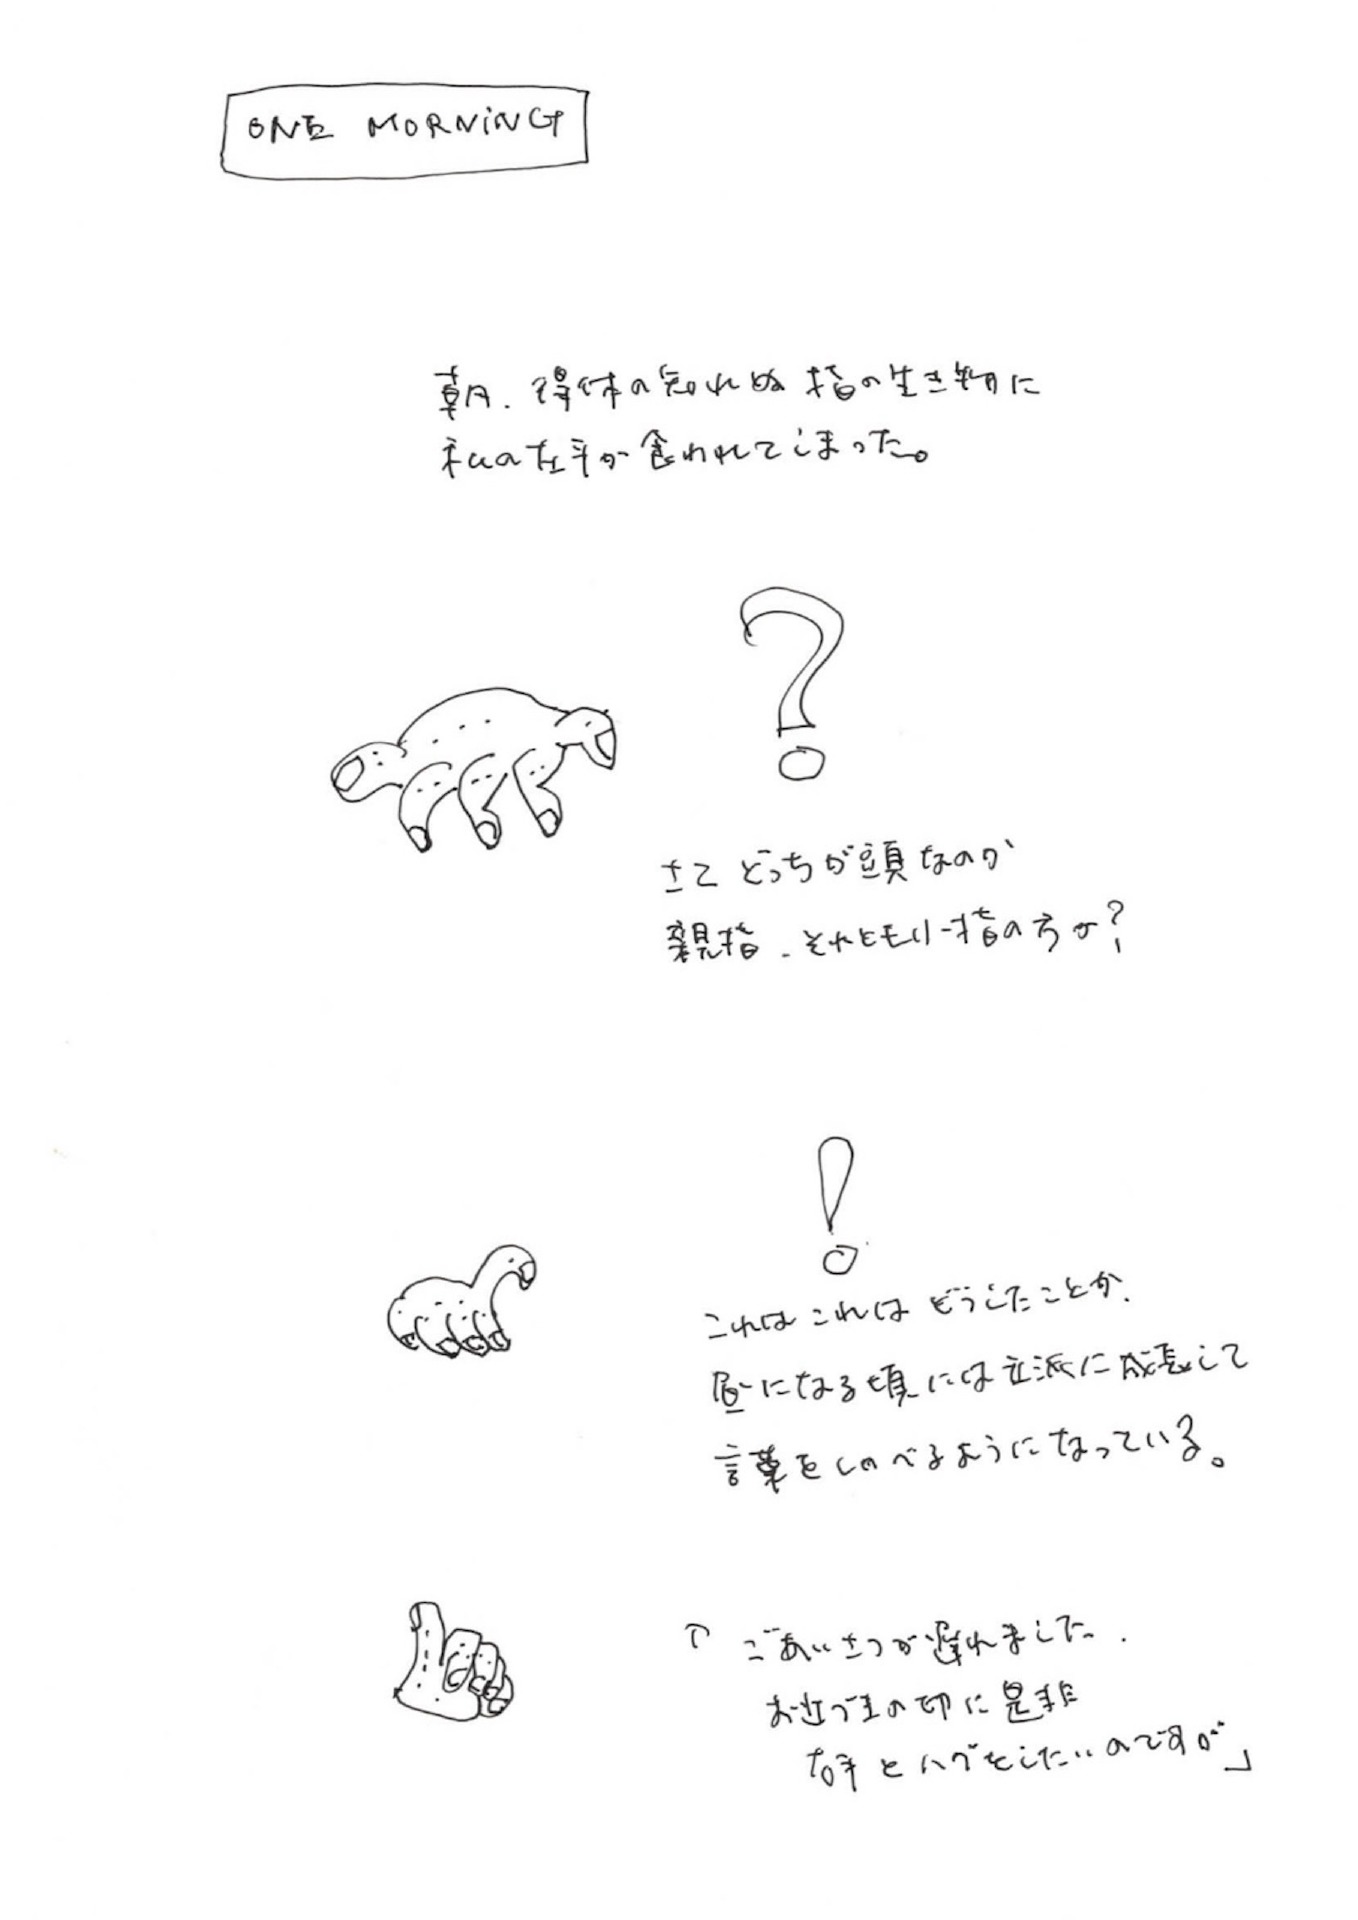 ONE MORNiNG
朝、得体の知れぬ指の生き物に
私の左手が食われてしまった。
?
さて どっちが頭なのか
親指、それとも小指の方か?
!
これは これは どうしたことか、
昼になる頃には立派に成長して
言葉をしゃべるようになっている。
「ごあいさつが遅れました.
お近づきの印に是非
右手とハグをしたいのですが」